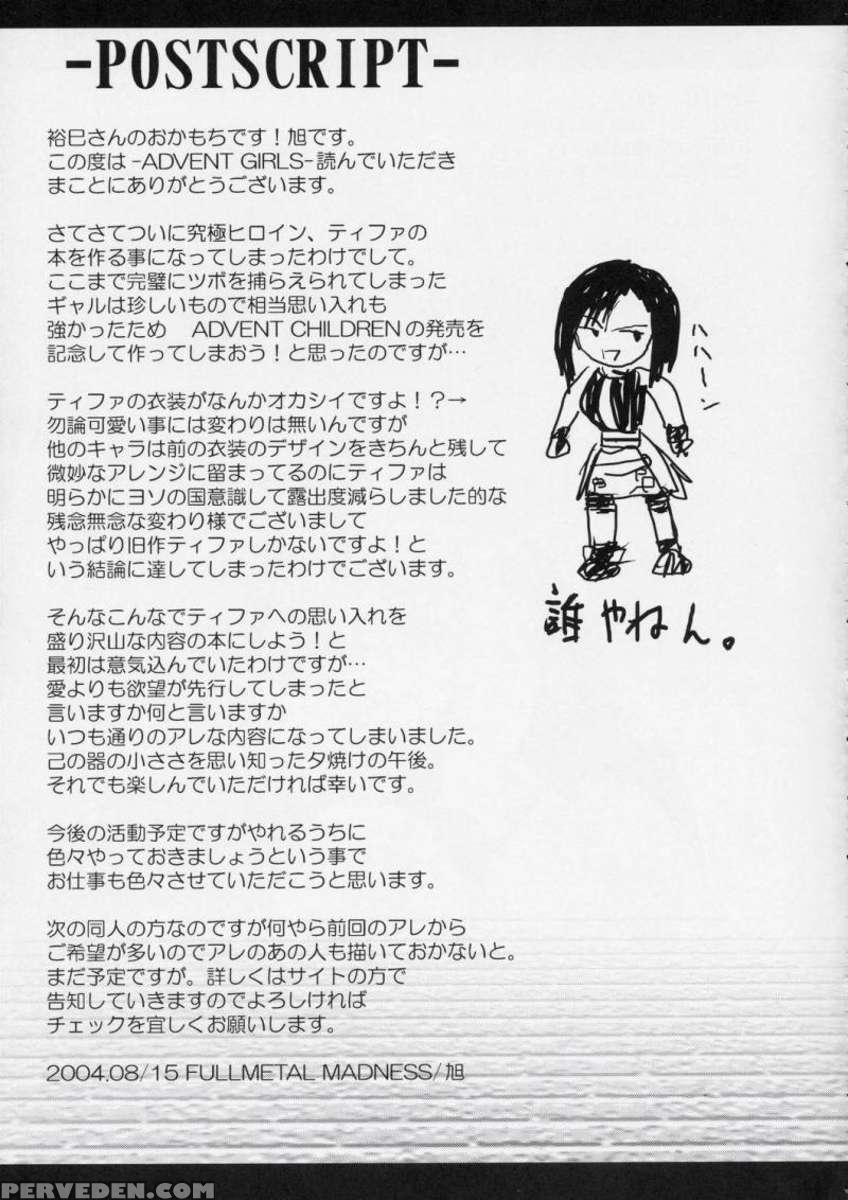 -POSTSCRIPT-
裕巳さんのおかもちです！旭です。
この度は-ADVENT GIRLS-読んでいただき
まことにありがとうございます。
さてさてついに究極ヒロイン、ティファの
本を作る事になってしまったわけでして。
ここまで完璧にツボを捕らえられてしまった
ギャルは珍しいもので相当思い入れも
強かったため　ADVENT CHILDRENの発売を
記念して作ってしまおう！と思ったのですが…
ティファの衣装がなんかオカシイですよ！？→
勿論可愛い事には変わりは無いんですが
他のキャラは前の衣装のデザインをきちんと残して
微妙なアレンジに留まってるのにティファは
明らかにヨソの国意識して露出度減らしました的な
残念無念な変わり様でございまして
やっぱり旧作ティファしかないですよ！と
いう結論に達してしまったわけでございます。
そんなこんなでティファへの思い入れを
盛り沢山な内容の本にしよう！と
最初は意気込んでいたわけですが…
愛よりも欲望が先行してしまったと
言いますか何と言いますか
いつも通りのアレな内容になってしまいました。
己の器の小ささを思い知った夕焼けの午後。
それでも楽しんでいただければ幸いです。
今後の活動予定ですがやれるうちに
色々やっておきましょうという事で
お仕事も色々させていただこうと思います。
次の同人の方なのですが何やら前回のアレから
ご希望が多いのでアレのあの人も描いておかないと。
まだ予定ですが。詳しくはサイトの方で
告知していきますのでよろしければ
チェックを宜しくお願いします。
2004.08/15 FULLMETAL MADNESS/旭
ハハーン
誰やねん。
PERVEDEN.COM